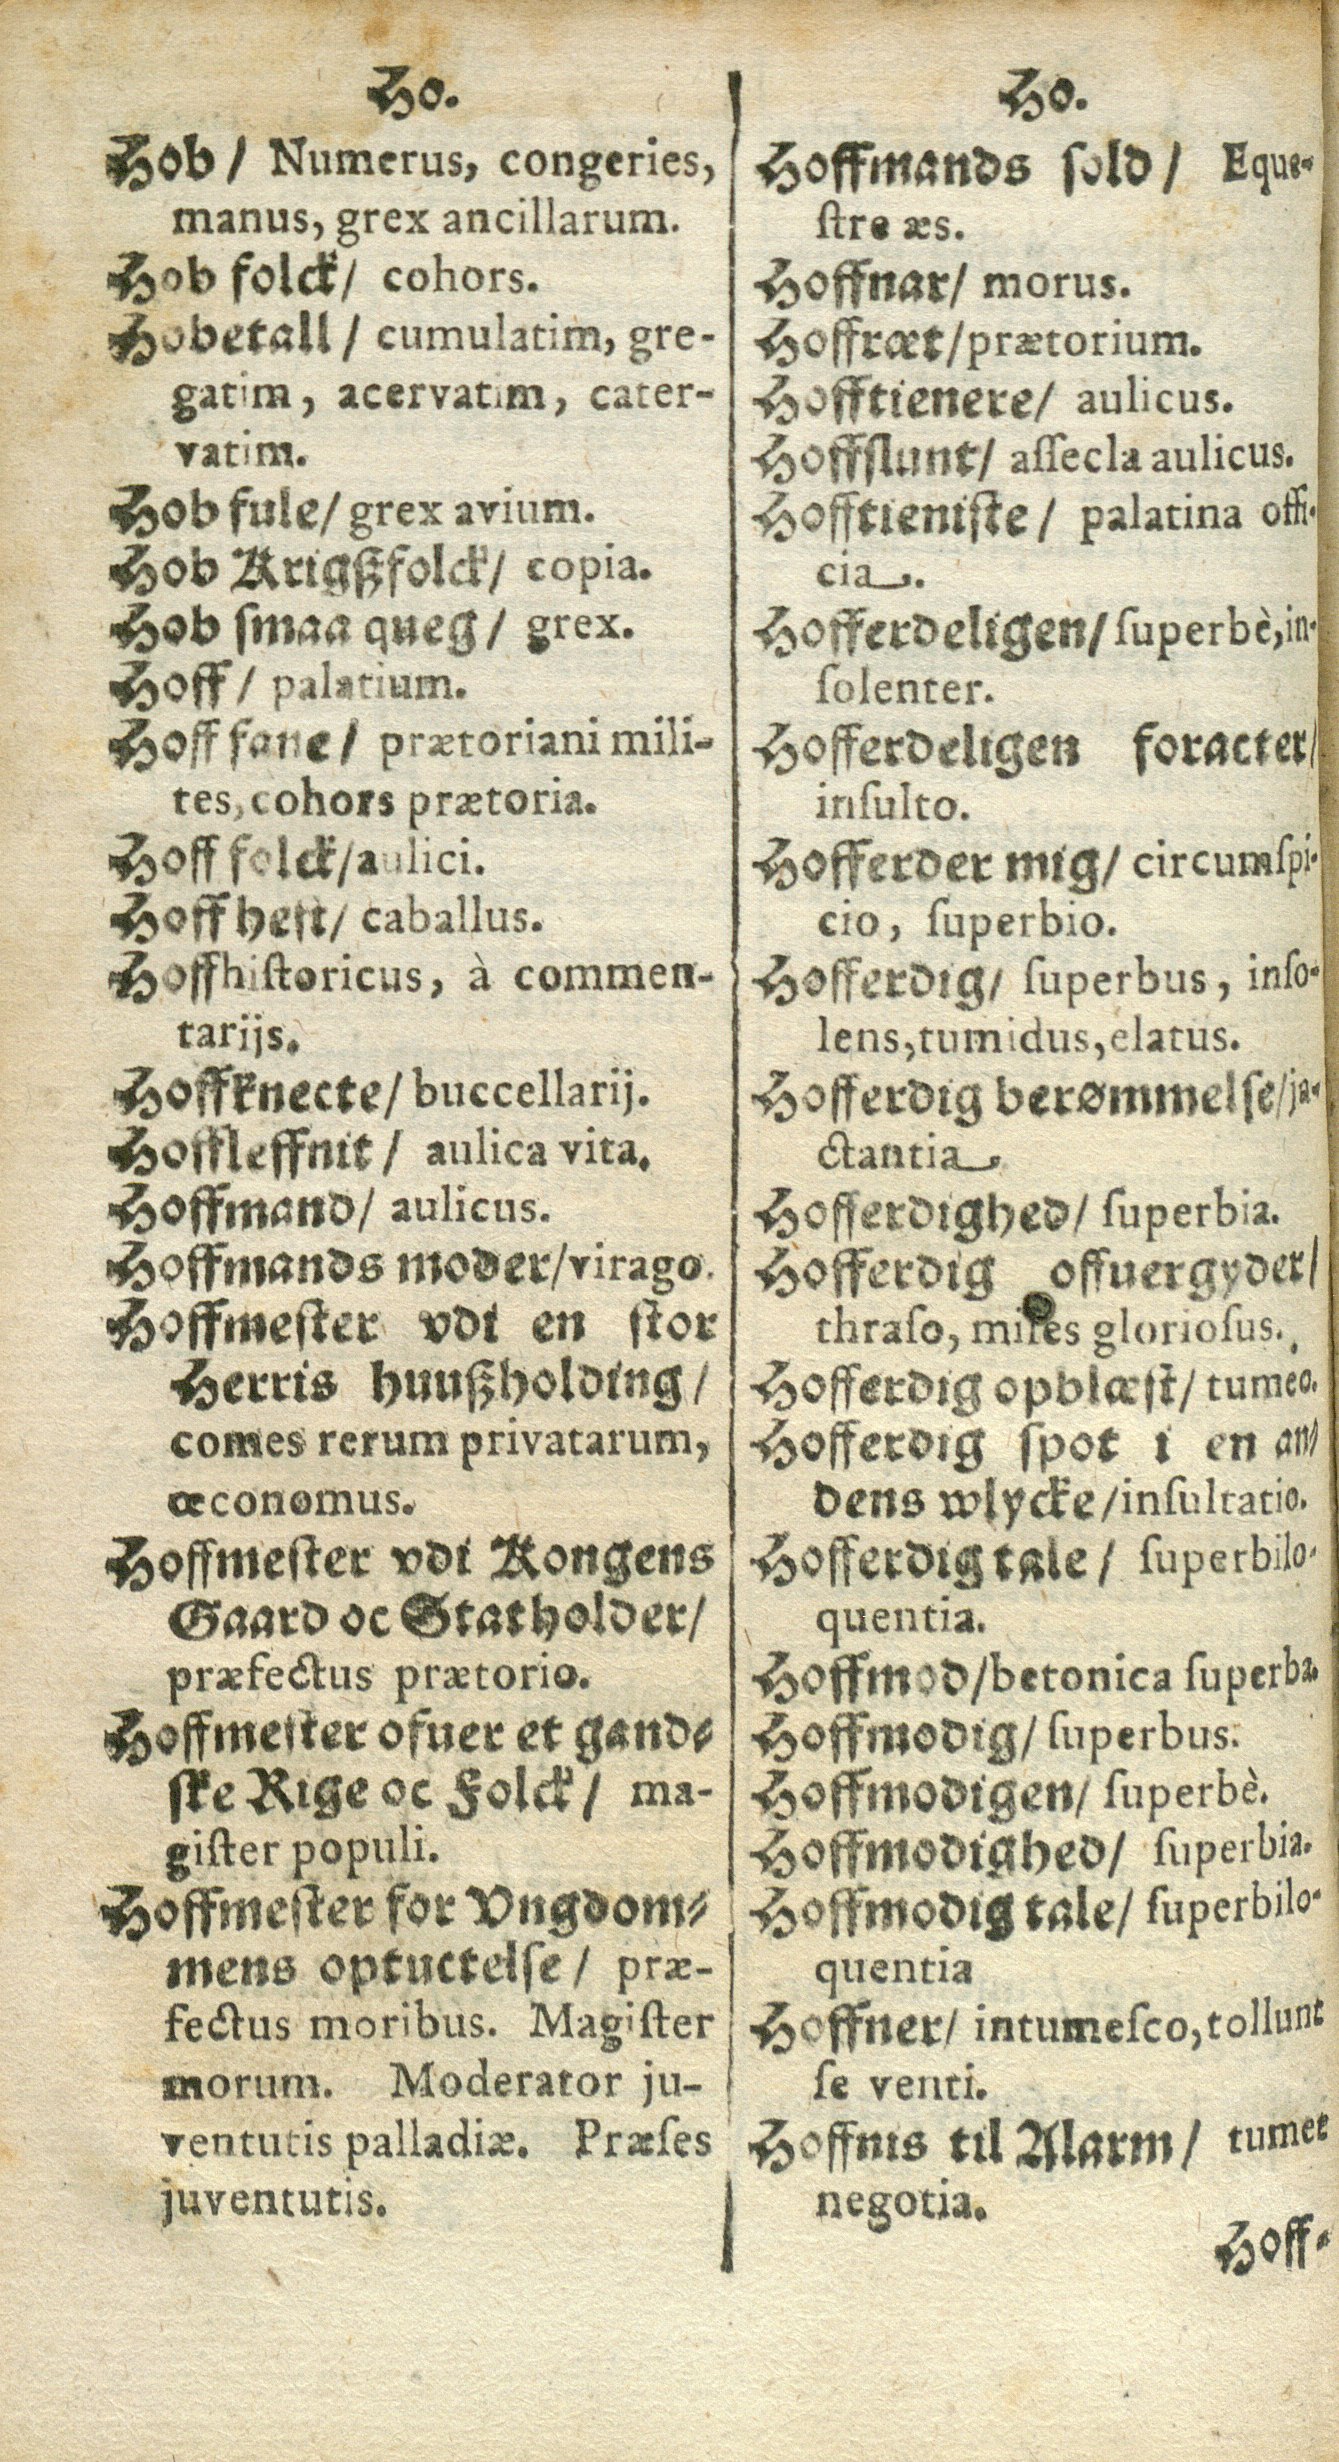 Ho.
Hob / Numerus, congeries,
manus, grex ancillarum.
Hob folck/ cohors.
Hobetall / cumulatim, gre-
gatim, acervatim, cater-
vatim.
Hob fule/ grex avium.
Hob Krigßfolck/ copia.
Hob ſmaa queg / grex.
Hoff / palatium.
Hoff fane / prætoriani mili-
tes, cohors prætoria.
Hoff folck/aulici.
Hoff heſt/ caballus.
Hoffhiſtoricus, à commen-
tarijs.
Hoffknecte/ buccellarij.
Hoffleffnit / aulica vita.
Hoffmand/ aulicus.
Hoffmands moder/virago.
Hoffmeſter vdi en ſtor
Herris huußholding /
comes rerum privatarum,
œconomus.
Hoffmeſter vdi Kongens
Gaard oc Statholder/
præfectus prætorio.
Hoffmeſter ofuer et gand-
ſke Rige oc Folck / ma-
giſter populi.
Hoffmeſter for Vngdom-
mens optuctelſe / præ-
fectus moribus. Magiſter
morum. Moderator ju-
ventutis palladiæ. Præſes
juventutis.
Ho.
Hoffmands ſold / Eque-
ſtre æs.
Hoffnar/ morus.
Hoffræt/prætorium.
Hofftienere/ aulicus.
Hoffſlunt/ aſſecla aulicus.
Hofftieniſte / palatina offi-
cia.
Hofferdeligen/ ſuperbè,in-
ſolenter.
Hofferdeligen foracter/
inſulto.
Hofferder mig/ circumſpi-
cio, ſuperbio.
Hofferdig/ ſuperbus, inſo-
lens,tumidus,elatus.
Hofferdig berømmelſe/ja-
ctantia.
Hofferdighed/ ſuperbia.
Hofferdig offuergyder/
thraſo, miles glorioſus.
Hofferdig opblæſt/ tumeo.
Hofferdig ſpot i en an-
dens wlycke/inſultatio.
Hofferdig tale / ſuperbilo-
quentia.
Hoffmod/betonica ſuperba.
Hoffmodig/ ſuperbus.
Hoffmodigen/ ſuperbè.
Hoffmodighed/ ſuperbia.
Hoffmodig tale/ ſuperbilo-
quentia
Hoffner/ intumeſco,tollunt
ſe venti.
Hoffnis til Alarm / tumet
negotia.
Hoff-